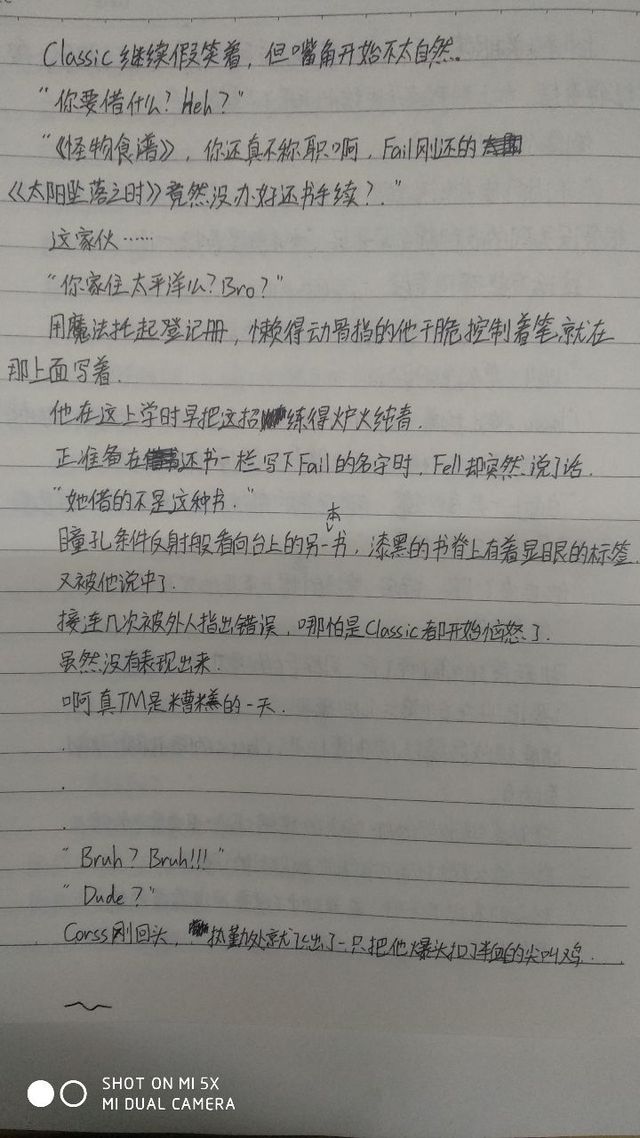 Classic继续假笑着，但嘴角开始不太自然。
"你要借什么？Heh？"
"《怪物食谱》，你还真不称职啊，Fail刚还的
《太阳坠落之时》竟然没办好还书手续？."
这家伙……
"你家住太平洋么？Bro？"
用魔法托起登记册，懒得动骨指的他干脆控制着笔就在
那上面写着.
他在这上学时早把这招练得炉火纯青.
正准备在还书一栏写下Fail的名字时，Fell却突然说了话.
"她借的不是这种书."
瞳孔条件反射般看向台上的另一本书，漆黑的书脊上有着显眼的标签.
又被他说中了.
接连几次被外人指出错误，哪怕是Classic都开始恼怒了.
虽然没有表现出来.
啊真TM是糟糕的一天.
.
.
.
"Bruh？Bruh!!!"
"Dude？"
Corss刚回头，执勤处就飞出了一只把他爆头扣了半血的尖叫鸡.
SHOT ON MI 5X
MI DUAL CAMERA